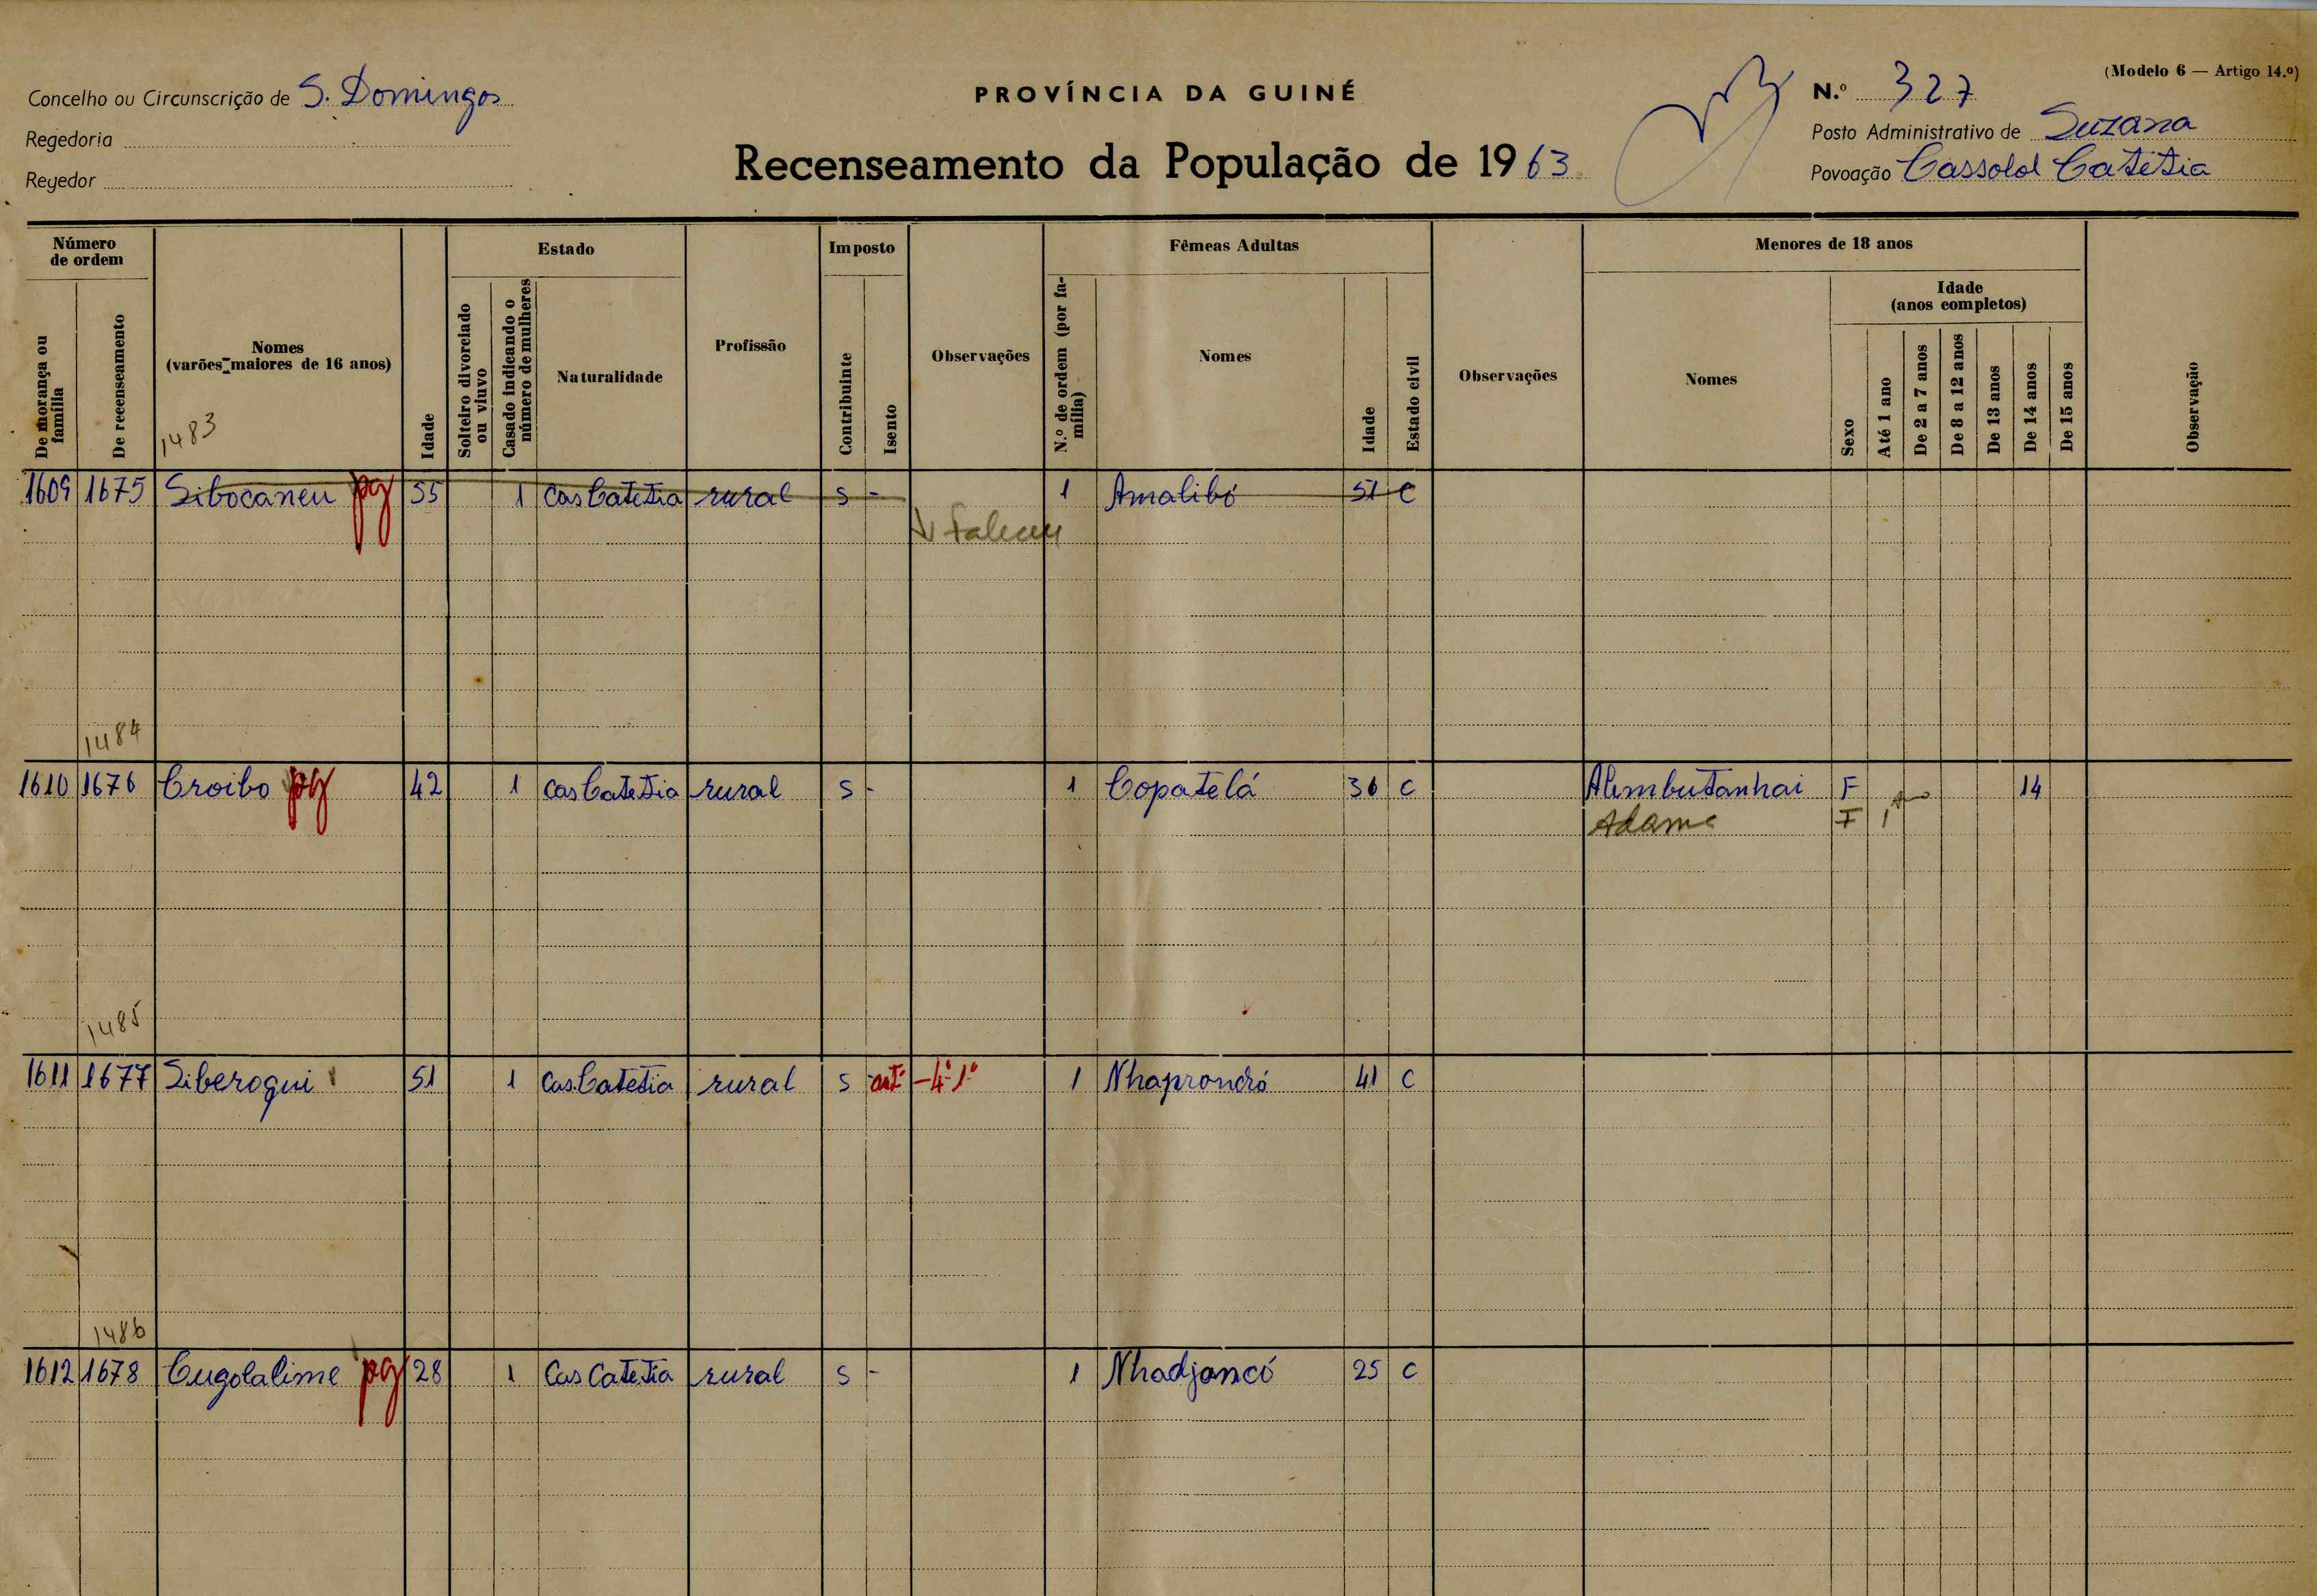 (Modelo 6 — Artigo 14.º)
Concelho ou Circunscrição de S. Domingos
PROVÍNCIA DA GUINÉ
N.º 327
Regedoria
Posto Administrativo de Suzana
Recenseamento da População de 1963
Regedor
Povoação Cassolol Catetia
Número de ordem
Estado
Imposto
Fêmeas Adultas
Menores de 18 anos
De morança ou família
De recenseamento
Nomes (varões maiores de 16 anos)
Idade
Solteiro divorciado ou viuvo
Casado indicando o número de mulheres
Naturalidade
Profissão
Contribuinte
Isento
Observações
N.º de ordem (por família)
Nomes
Idade
Estado civil
Observações
Nomes
Sexo
Idade (anos completos)
Até 1 ano
De 2 a 7 anos
De 8 a 12 anos
De 13 anos
De 14 anos
De 15 anos
Observação
1483
1609 1675 Sibocaneu pg 55 1 Cas Catetia rural s - 1 Amalibó 51 C
1484
1610 1676 Croibo pg 42 1 Cas Catetia rural s - 1 Copatelá 36 C Alimbutanhai F 14
Adama F 1 Ano
1485
1611 1677 Siberoqui 51 1 Cas.Catetia rural s 1 Nhaprondó 41 C
1486
1612 1678 Cugolalime pg 28 1 Cas Catetia rural s - 1 Nhadjancó 25 C